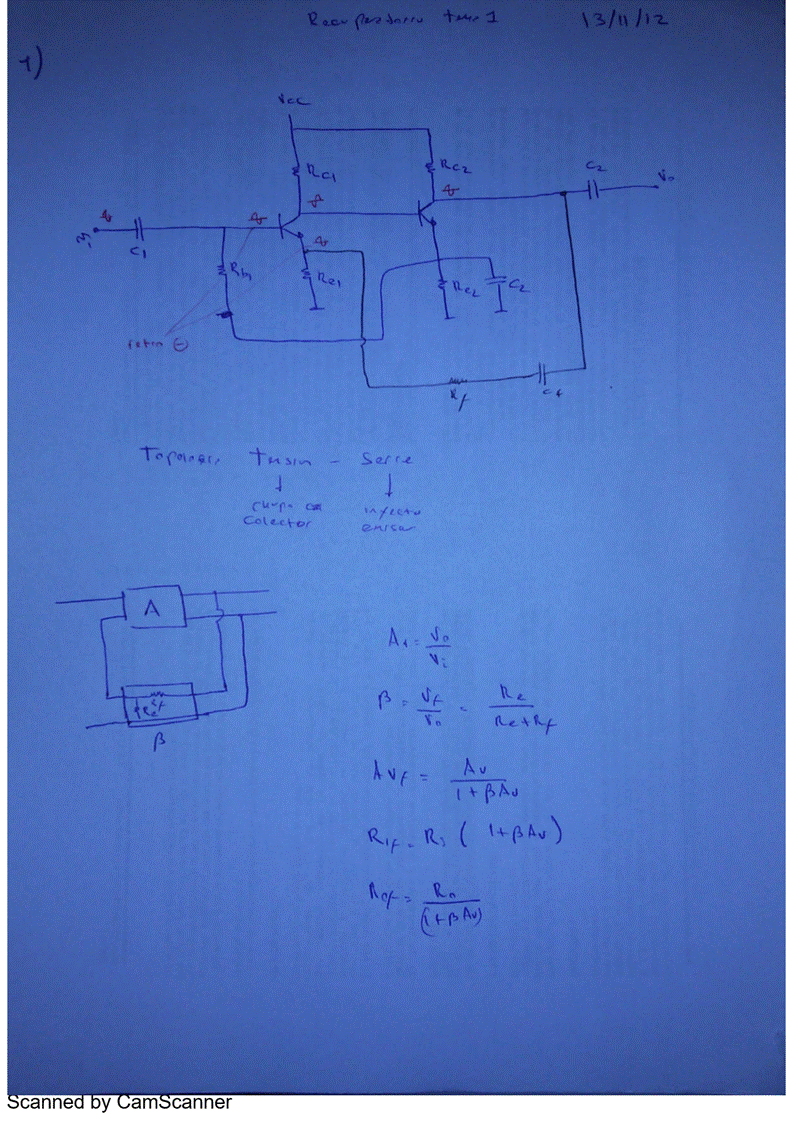 Recuperatorio tema 1 13/11/12
1)
Vcc
Rc1
Rc2
C2
Vo
C1
Rb1
Re1
Re2
C2
retro ⊖
Rf
Topolog. Tension - Serie
colector
inyecta
emisor
A
Rf
Re
β
Av = Vo / Vi
β = Vf / Vo = Re / (Re + Rf)
Avf = Av / (1 + βAv)
Rif = Ri ( 1 + βAv )
Rof = Ro / (1 + βAv)
Scanned by CamScanner